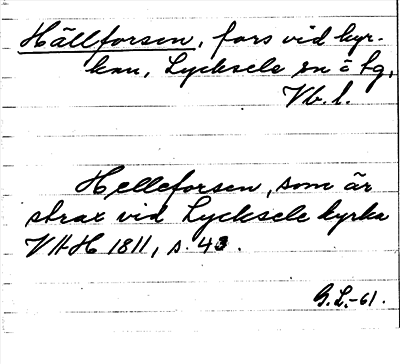 Hällforsen, fors vid kyr-
kan, Lycksele sn o lg,
Vb. l.
Helleforsen, som är
strax vid Lycksele kyrka
VAH 1811, s. 43.
G.L.-61.